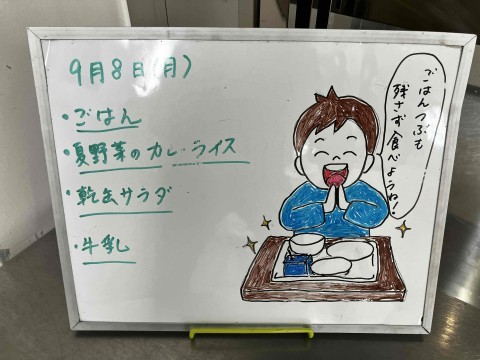 9月8日(月)
・ごはん
・夏野菜のカレーライス
・乾缶サラダ
・牛乳
ごはんつぶも
残さず食べようね!